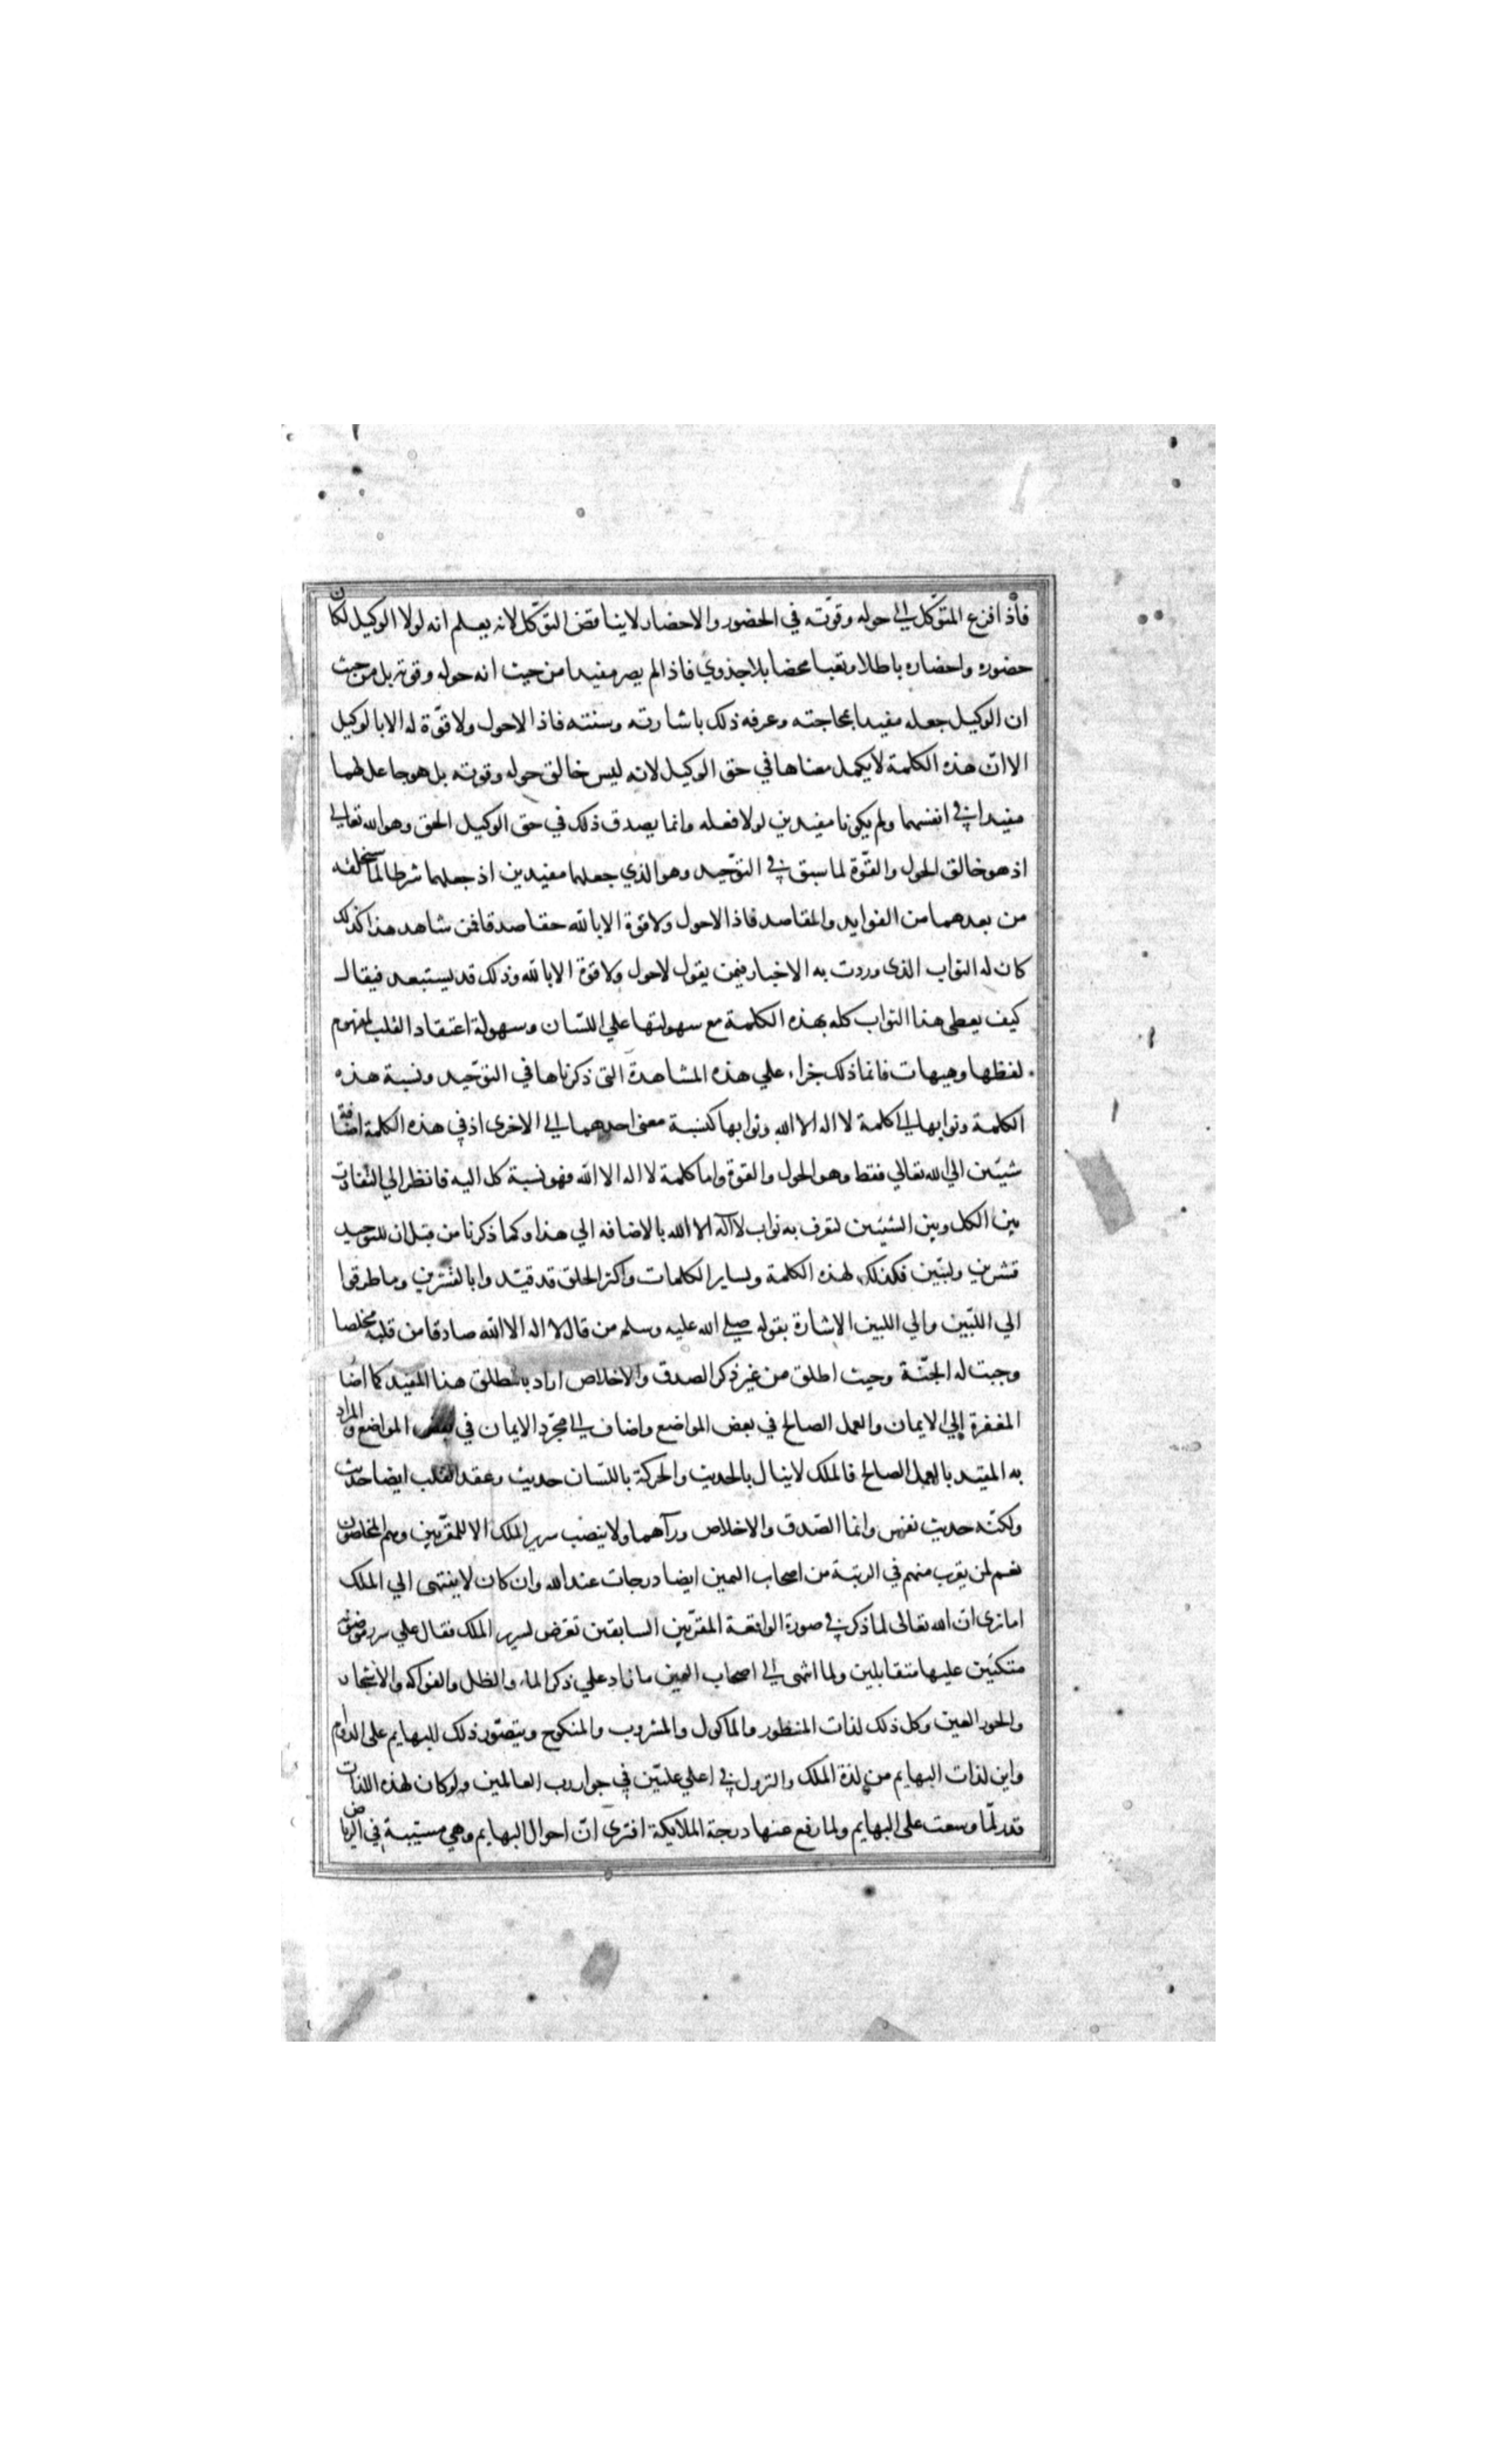 فاذا فزع المتوكل الى حوله وقوّته في الحضور والاحضار لا يناقض التوكّل لانه يعلم انه لولا الوكيل لكان
حضوره واحضاره باطلا وتعبا محضا بلا جذوي فاذا لم يصر مفيدا من حيث انه حوله وقوته بل من حيث
ان الوكيل جعله مفيدا بمحاجته وعرفه ذلك باشارته وسنته فاذا لاحول ولا قوّة له الا بالوكيل
الا انّ هذه الكلمة لا يكمل معناها في حق الوكيل لانه ليس خالق حوله وقوته بل هو جاعل لهما
مفيدا في انفسهما ولم يكونا مفيدين لولا فعله وانما يصدق ذلك في حق الوكيل الحق وهو الله تعالي
اذ هو خالق الحول والقوّة لما سبق في التوّحيد وهو الذي جعلهما مفيدين اذ جعلهما شرطا لما سيخلقه
من بعدهما من الفوايد والمقاصد فاذا لاحول ولا قوة الا بالله حقا صدقا فمن شاهد هذا كذلك
كان له الثواب الذى وردت به الاخبار فيمن يقول لاحول ولا قوة الا بالله وذلك قد يستبعد فيقال
كيف يعطى هذا الثواب كله بهذه الكلمة مع سهولتها علي اللسان وسهولة اعتقاد القلب لمفهوم
لفظها وهيهات فانما ذلك جزاء علي هذه المشاهدة التى ذكرناها في التوحيد ونسبة هذه
الكلمة وثوابها الى كلمة لا اله الا الله وثوابها كنسبة معنى احدهما الى الاخرى اذ في هذه الكلمة اضافة
شيئين الي الله تعالي فقط وهو الحول والقوة واما كلمة لا اله الا الله فهو نسبة كل اليه فانظر الي التفاوت
بين الكل وبين الشيئين لتعرف به ثواب لا اله الا الله بالاضافه الي هذا وكما ذكرنا من قبل ان للتوحيد
قشرين ولبّين فكذلك لهذه الكلمة ولساير الكلمات واكثر الخلق قد قيّدوا بالقشرين وما طرقوا
الي اللبّين والي اللبين الاشارة بقوله صلى الله عليه وسلم من قال لا اله الا الله صادقا من قلبه مخلصا
وجبت له الجنّة وحيث اطلق من غير ذكر الصدق والاخلاص اراد بالمطلق هذا المقيد كما اضا
المغفرة إلي الايمان والعمل الصالح في بعض المواضع واضاف الى مجرّد الايمان في بعض المواضع والمراد
به المقيد بالعمل الصالح فالملك لا ينال بالحديث والحركة باللسان حديث وعقد القلب ايضا حديث
ولكنّه حديث نفس وانما الصّدق والاخلاص ورآهما ولا ينصب سرير الملك الا للمقرّبين وهم المخلصون
نعم لمن يقرب منهم في الرتبة من اصحاب اليمين ايضا درجات عند الله وان كان لا ينتهى الي الملك
اما ترى ان الله تعالى لما ذكر في صورة الواقعة المقرّبين السابقين تعرّض لسرير الملك فقال علي سرر موضونة
متكئين عليها متقابلين ولما انتهى الى اصحاب اليمين ما زاد علي ذكر الماء والظل والفواكه والاشجار
والحور العين وكل ذلك لذات المنظور والماكول والمشروب والمنكوح ويتصوّر ذلك للبهايم على الدوام
واين لذات البهايم من لذة الملك والنزول في اعلي عليّين في جوار رب العالمين ولو كان لهذه اللذات
قدر لمّا وسعت على البهايم ولما رفع عنها درجة الملايكة افترى انّ احوال البهايم وهي مسيّبة في الرياض